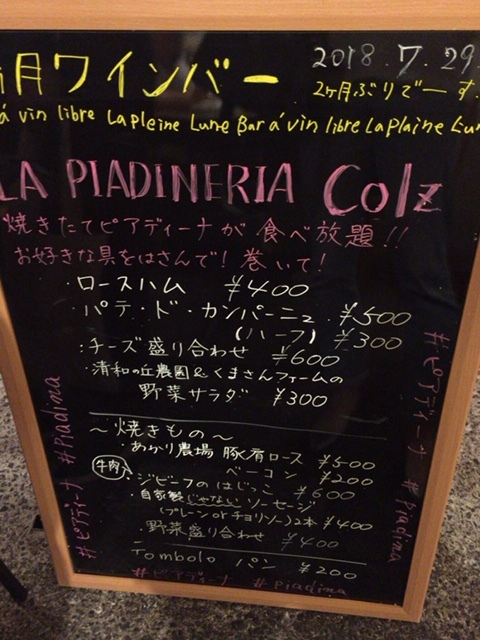 月ワインバー 2018.7.29.
2ヶ月ぶりでーす.
á vin libre La pleine Lune Bar á vin libre La plaine Lun
LA PIADINERIA Colz
焼きたてピアディーナが食べ放題!!
お好きな具をはさんで!巻いて!
・ロースハム ¥400
・パテ・ド・カンパーニュ ¥500
(ハーフ) ¥300
・チーズ盛り合わせ ¥600
・清和の丘農園&くまさんファームの
野菜サラダ ¥300
〜焼きもの〜
・あかり農場 豚肩ロース ¥500
ベーコン ¥200
牛肉
ジビーフのはじっこ ¥600
・自家製じゃないソーセージ
(プレーンorチョリソー)2本 ¥400
・野菜盛り合わせ ¥400
Tombolo パン ¥200
#ピアディーナ #Piadina
#ピアディーナ #Piadina
#ピアディーナ #Piadina